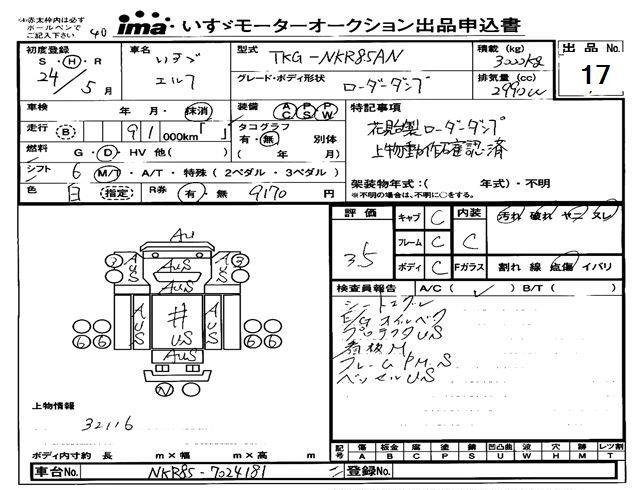 ※赤太枠内は必ず
ボールペンで
ご記入下さい
40
ima いすゞモーターオークション出品申込書
初度登録
S・H・R
24年 5月
車名
いすゞ
エルフ
型式
TKG-NKR85AN
グレード・ボディ形状
ローダーダンプ
積載 (kg)
3000kg
排気量 (cc)
2990cc
出品 No.
17
車検 年 月・抹消
走行 (B) 91 000km「 」
燃料 G・D・HV 他( )
シフト 6 M/T・A/T・特殊(2ペダル・3ペダル)
色 白 (指定) R券 有・無 9170 円
装備 A/C P/S P/W
タコグラフ
有・無 別体
( 年 月)
特記事項
花見台製ローダーダンプ
上物動作確認済
架装物年式:( 年式)・不明
※不明の場合は、不明に○をする。
評価
3.5
キャブ C
フレーム C
ボディ C
内装
C
Fガラス
汚れ 破れ ヤニ スレ
割れ 線 点傷 イバリ
検査員報告 A/C( ✓ ) B/T( )
シートコゲ
E/Gオイルベタ
プロテクタUS
看板M
フレームPM.S
ベッセルUS
AU
AUS
3
3
AUS
AUS
AUS
#
US
AUS
AUS
6 6
6 6
上物情報
32116
ボディ内寸約 長 m×幅 m×高 m
記号 傷 板金 腐 塗 錆 凹凸曲 波 穴 跡 レツ割
A B C P S U W H M T
車台No. NKR85-7024181
登録No.